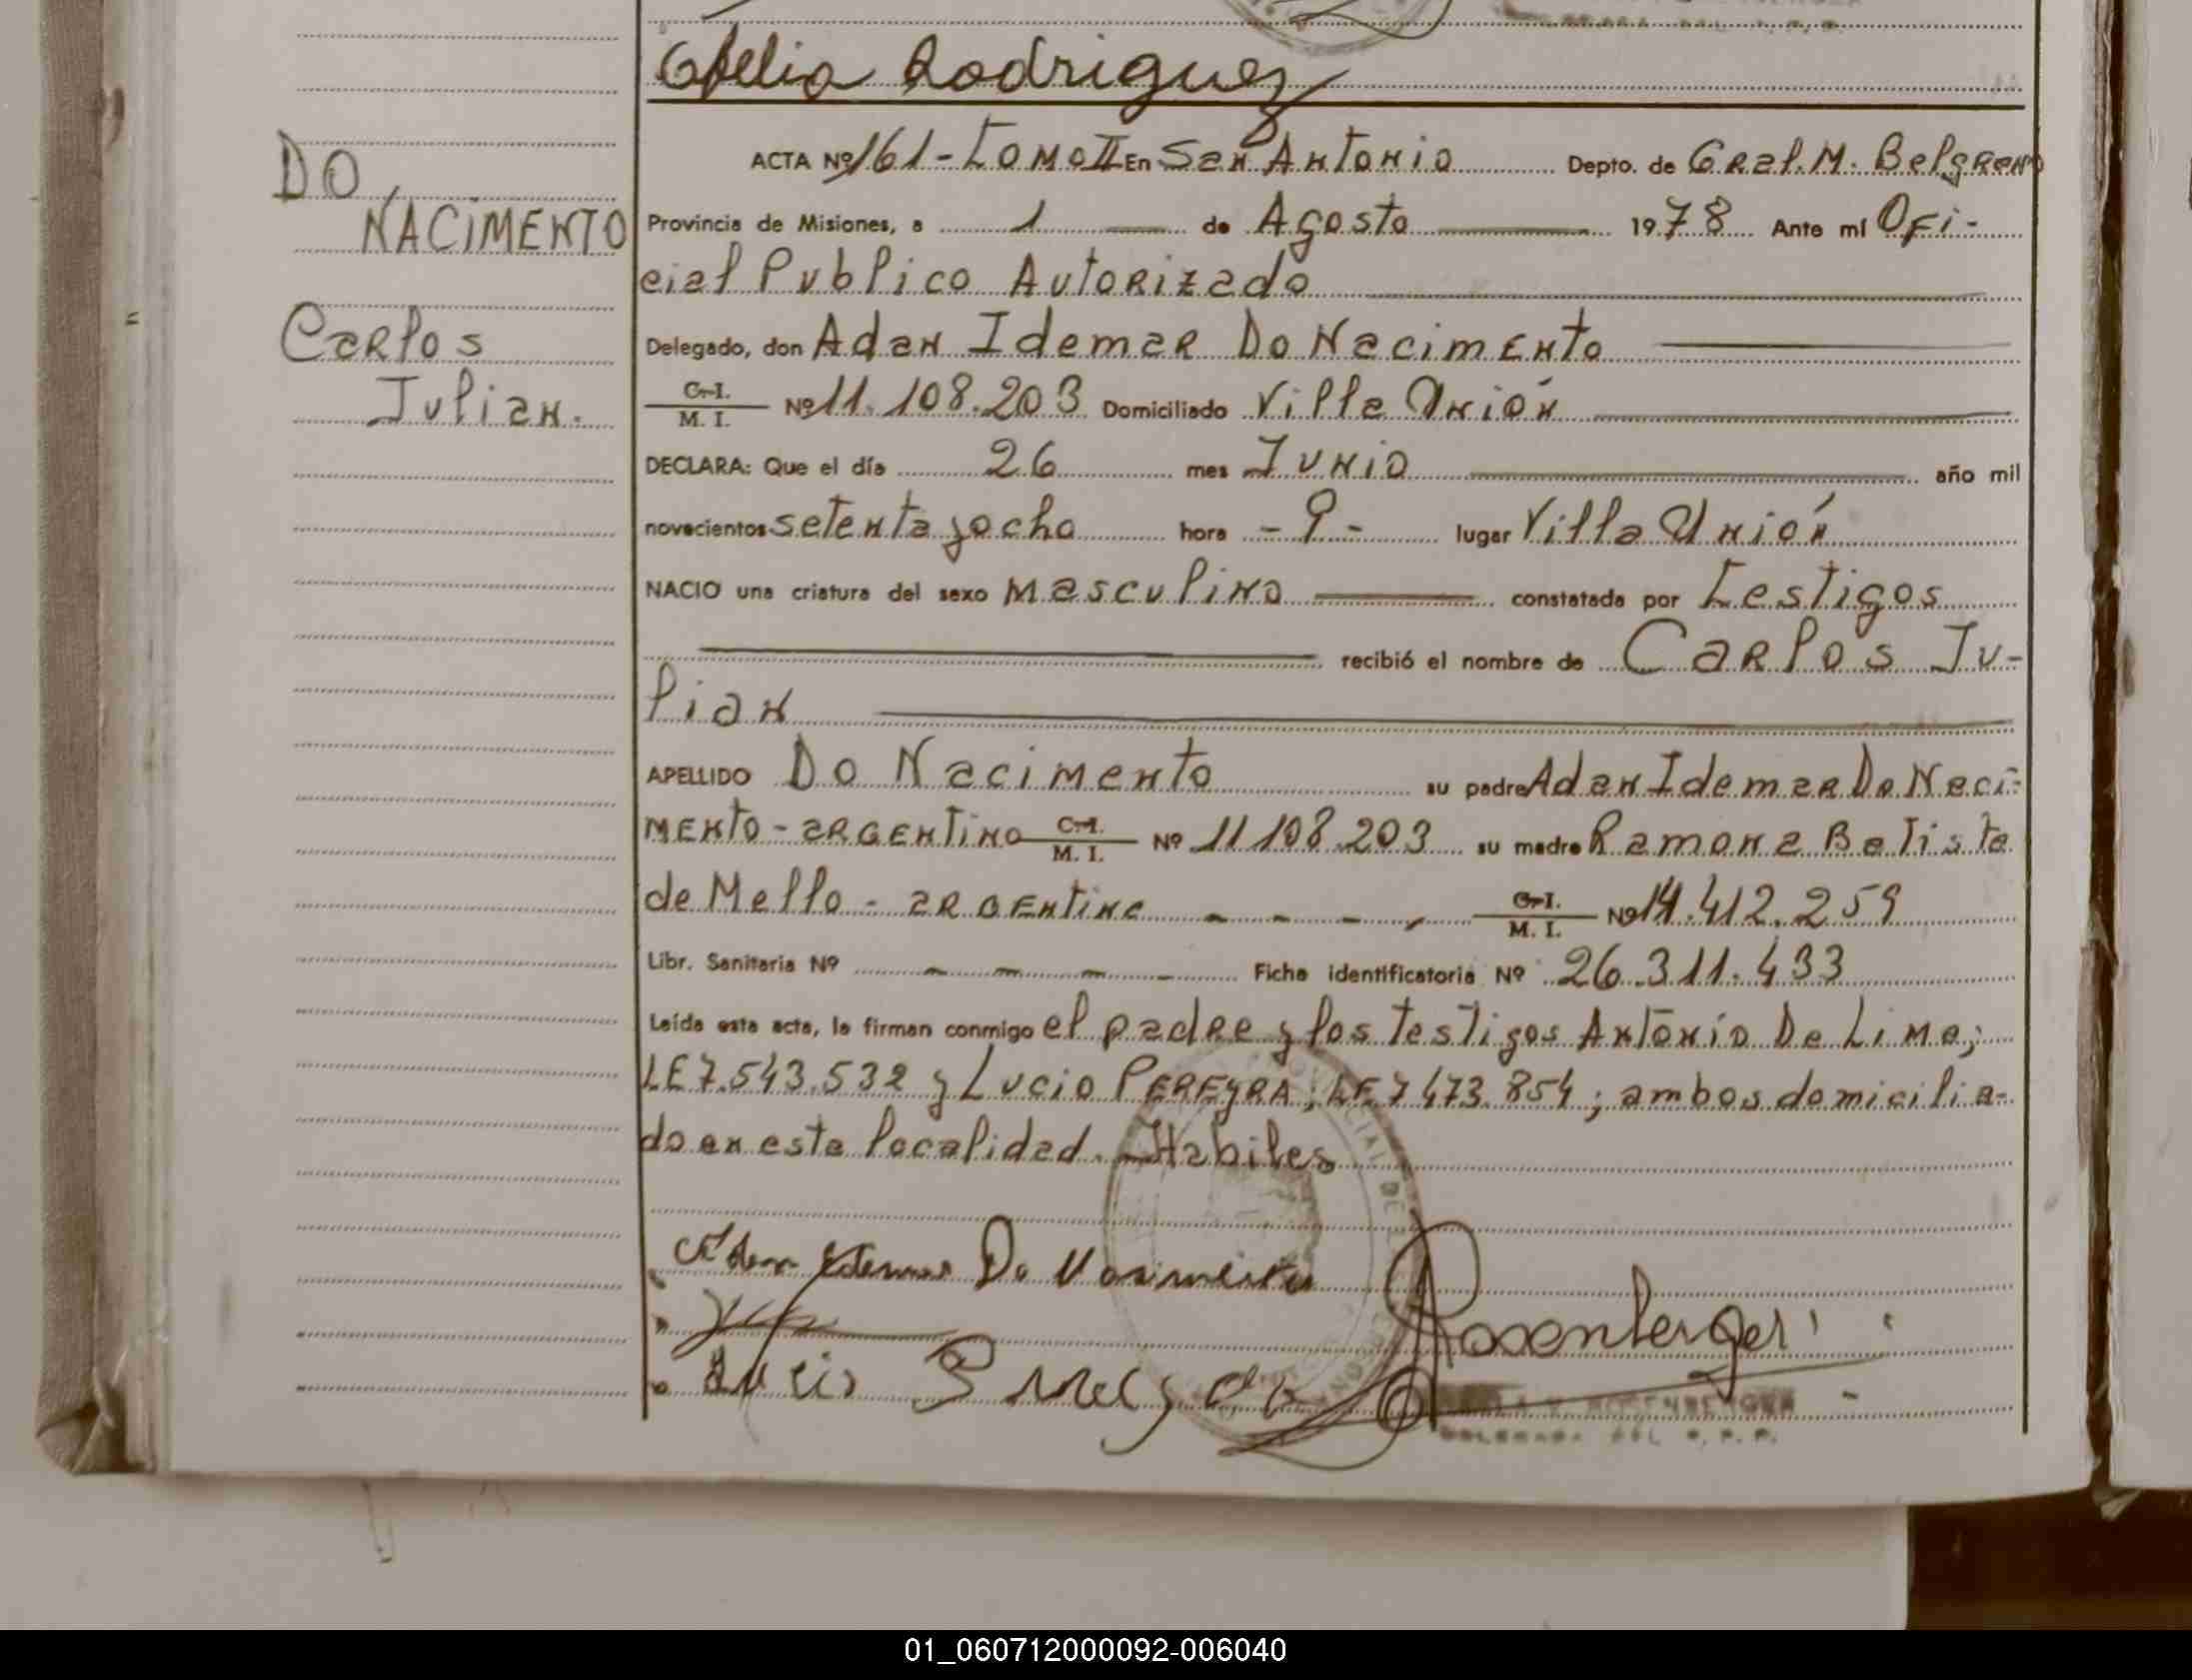 Ofelia Rodriguez
DO
NACIMENTO
Carlos
Julian.
ACTA Nº 161 - Tomo II En San Antonio Depto. de Gral. M. Belgrano
Provincia de Misiones, a 1 de Agosto 1978 Ante mí Ofi-
cial Publico Autorizado
Delegado, don Adan Idemar Do Nacimento
C. I.
M. I. Nº 11.108.203 Domiciliado Villa Unión
DECLARA: Que el día 26 mes Junio año mil
novecientos setenta y ocho hora - 9 - lugar Villa Unión
NACIO una criatura del sexo masculino constatada por Testigos
recibió el nombre de Carlos Ju-
lian
APELLIDO Do Nacimento su padre Adan Idemar Do Naci-
mento - argentino C. I. M. I. Nº 11108.203 su madre Ramona Batista
de Mello - argentina - - - - C. I. M. I. Nº 14.412.259
Libr. Sanitaria Nº - - - - Ficha identificatoria Nº 26.311.433
Leída esta acta, la firman conmigo el padre y los testigos Antonio De Lima;
LE 7.543.532 y Lucio Pereyra; LE 7473.854; ambos domicilia-
do en esta localidad. - Habiles
Adan Idemar Do Nacimento
Rosenberger
Lucio Pereyra
01_060712000092-006040